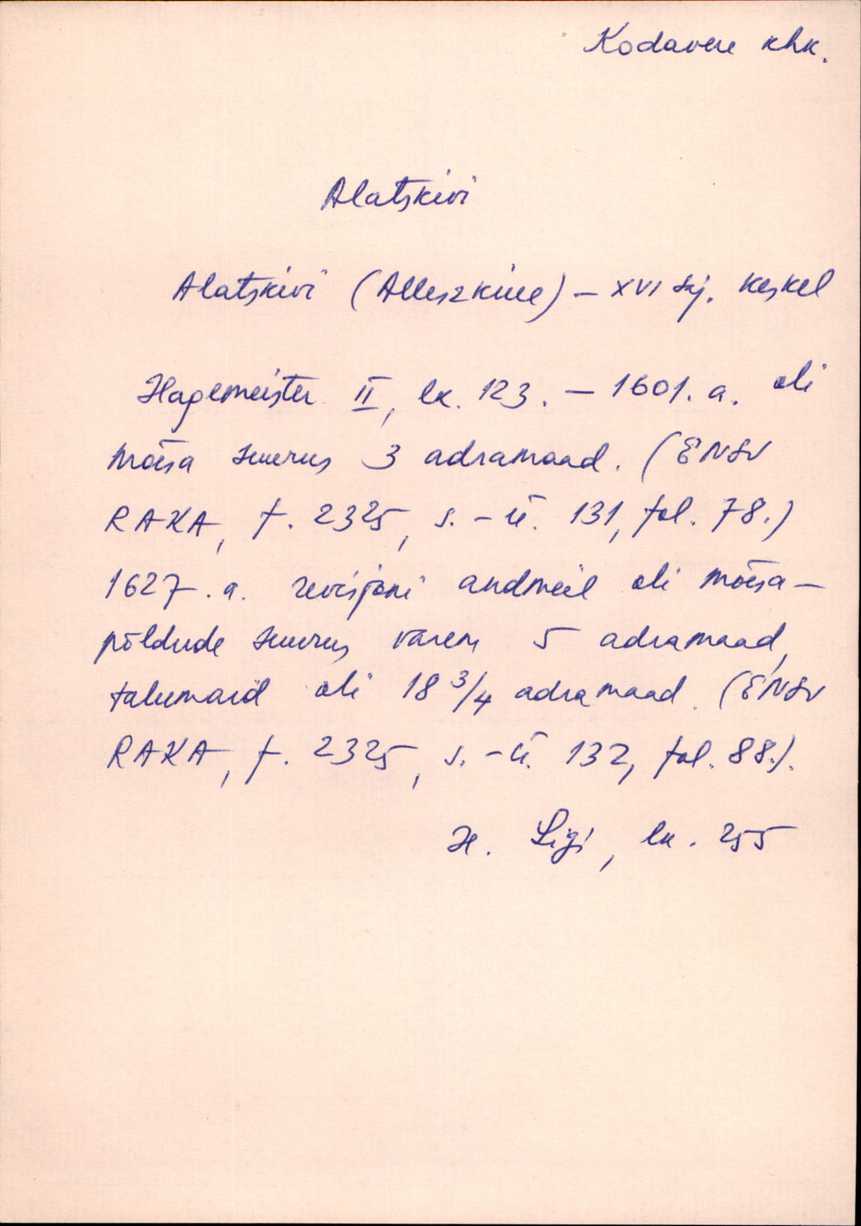 Kodavere khk.
Alatskivi
Alatskivi (Alleszkiue) – XVI saj. keskel
Hagemeister II, lk. 123. – 1601. a. oli
mõisa suurus 3 adramaad. (ENSV
RAKA, f. 2325, s.-ü. 131, fol. 78.)
1627. a. revisjoni andmeil oli mõisa-
põldude suurus varem 5 adramaad,
talumaid oli 18 3/4 adramaad. (ENSV
RAKA, f. 2325, s.-ü. 132, fol. 88.).
H. Ligi, lk. 255